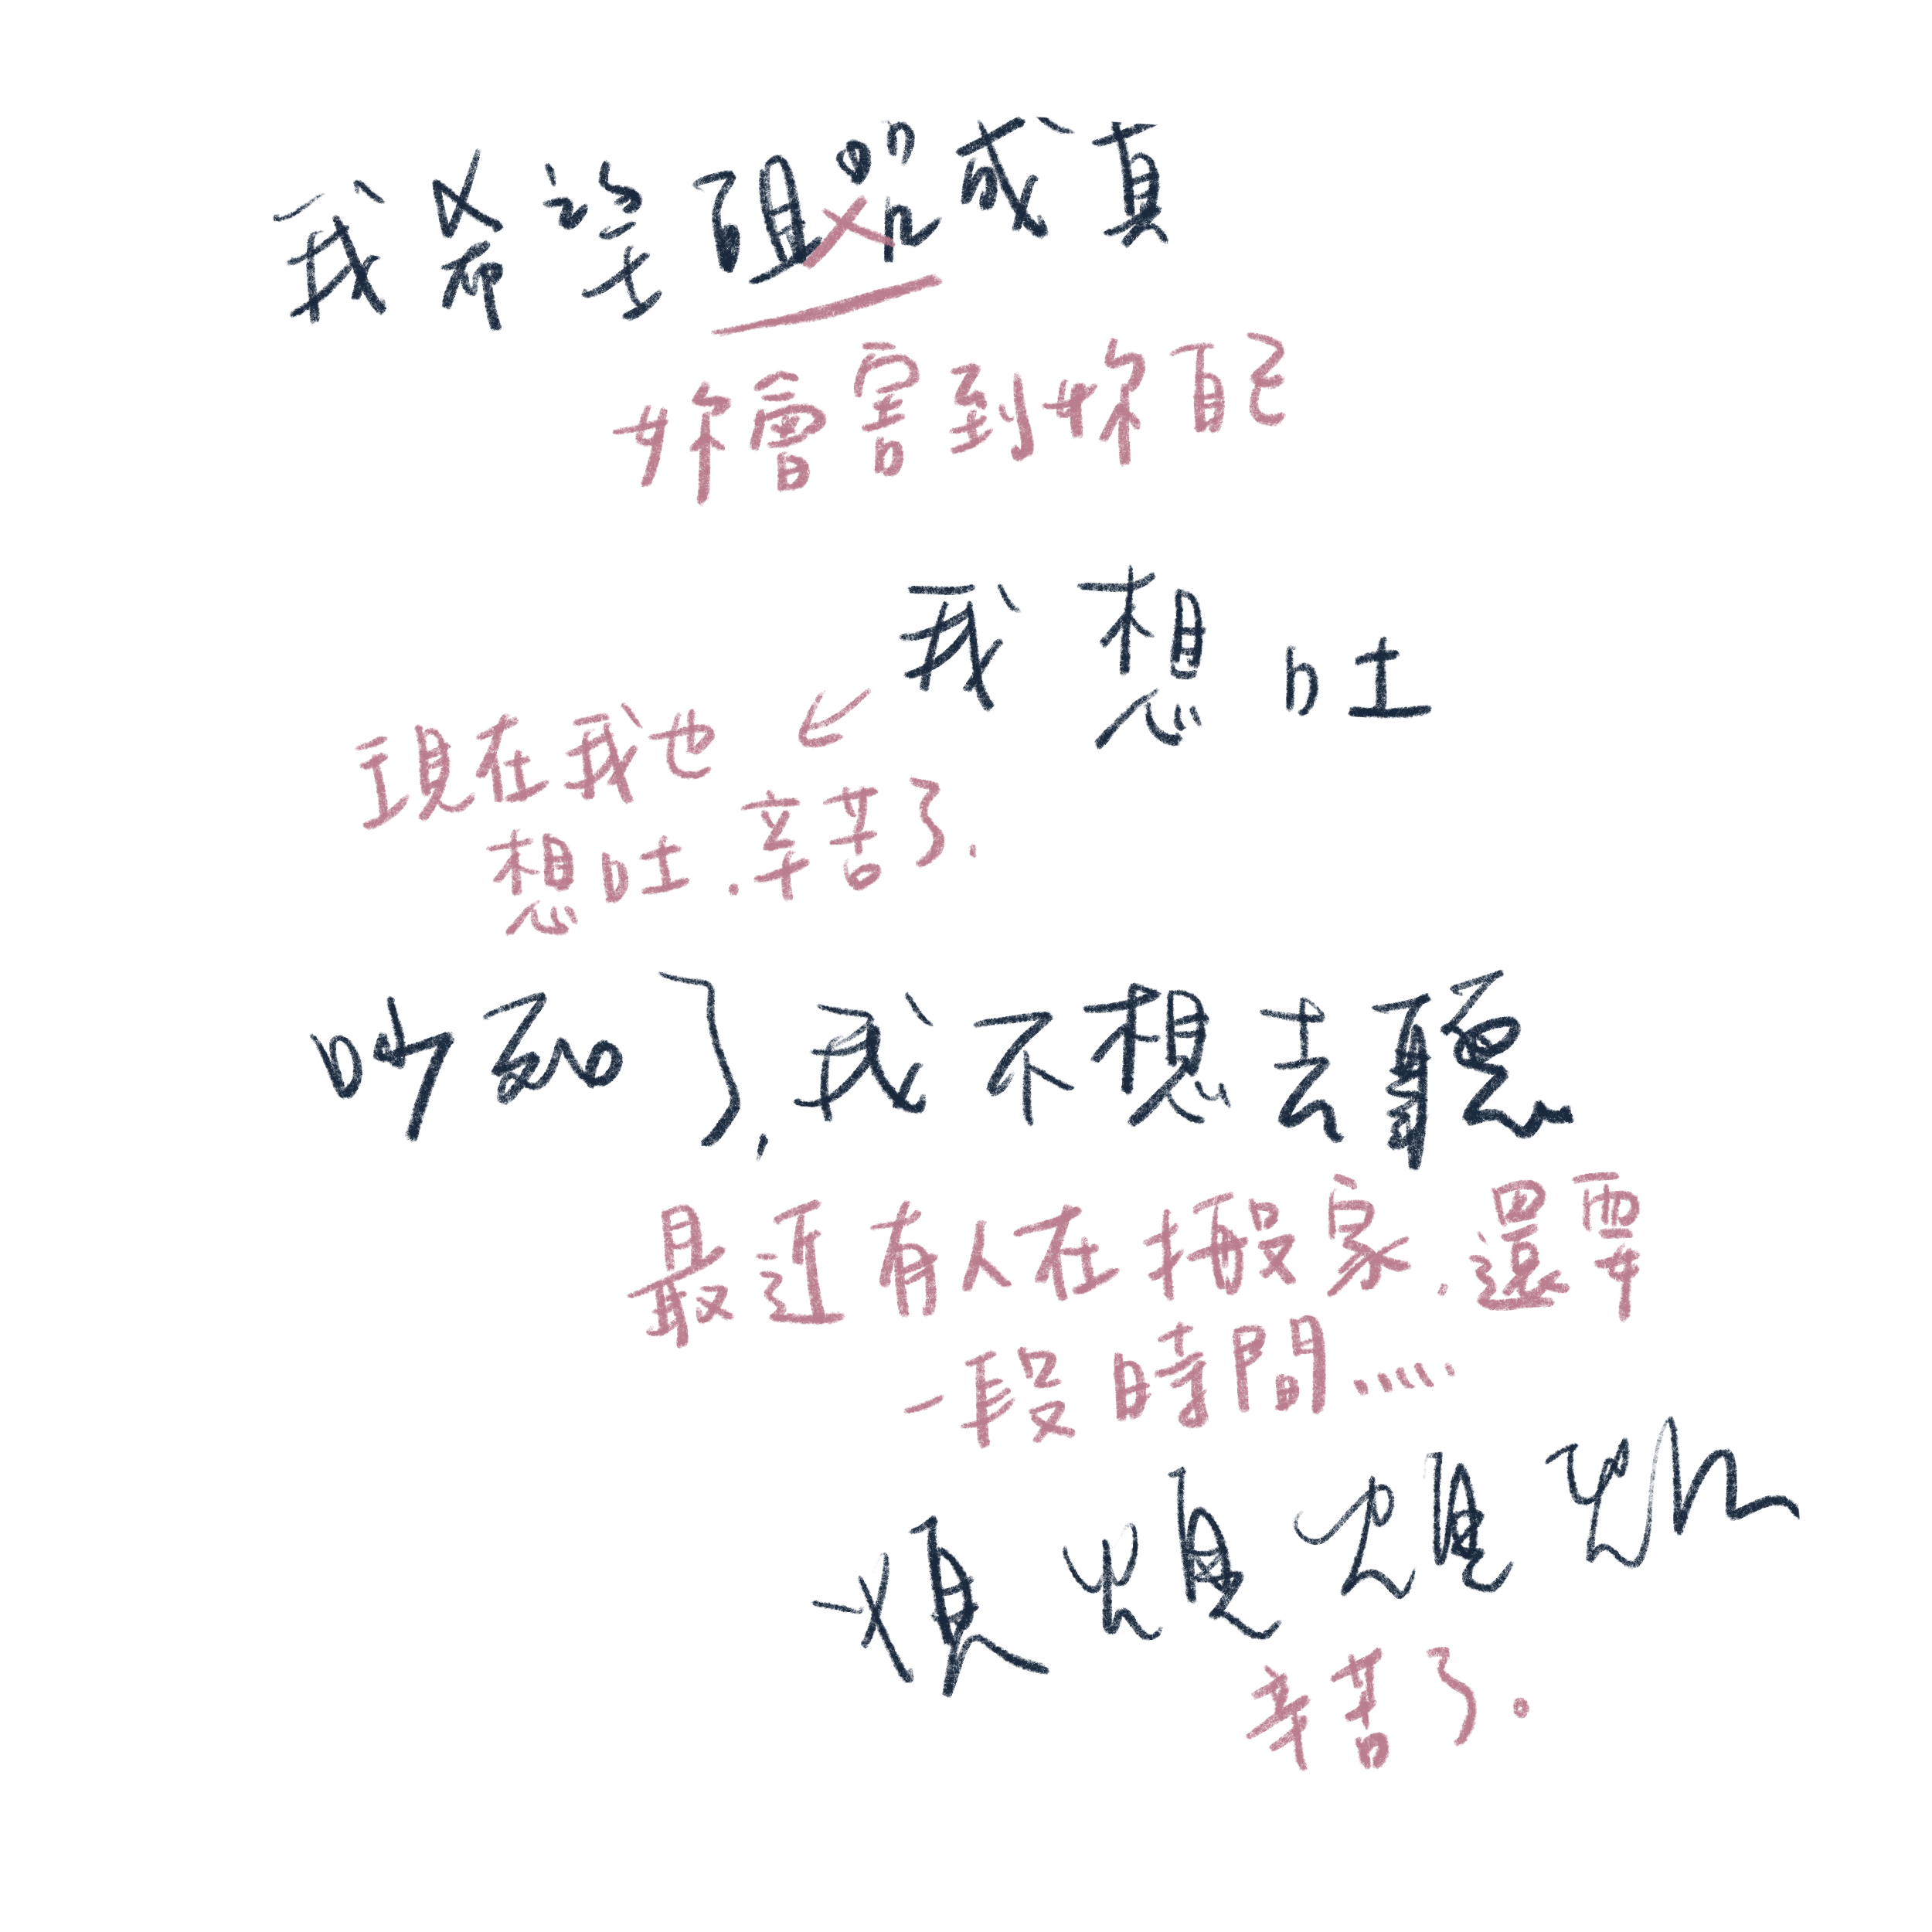 我希望詛咒成真
妳會害到妳自己
我想吐
現在我也
想吐.辛苦了.
吵了,我不想去聽
最近有人在搬家.還要
一段時間.....
煩煩煩煩
辛苦了.